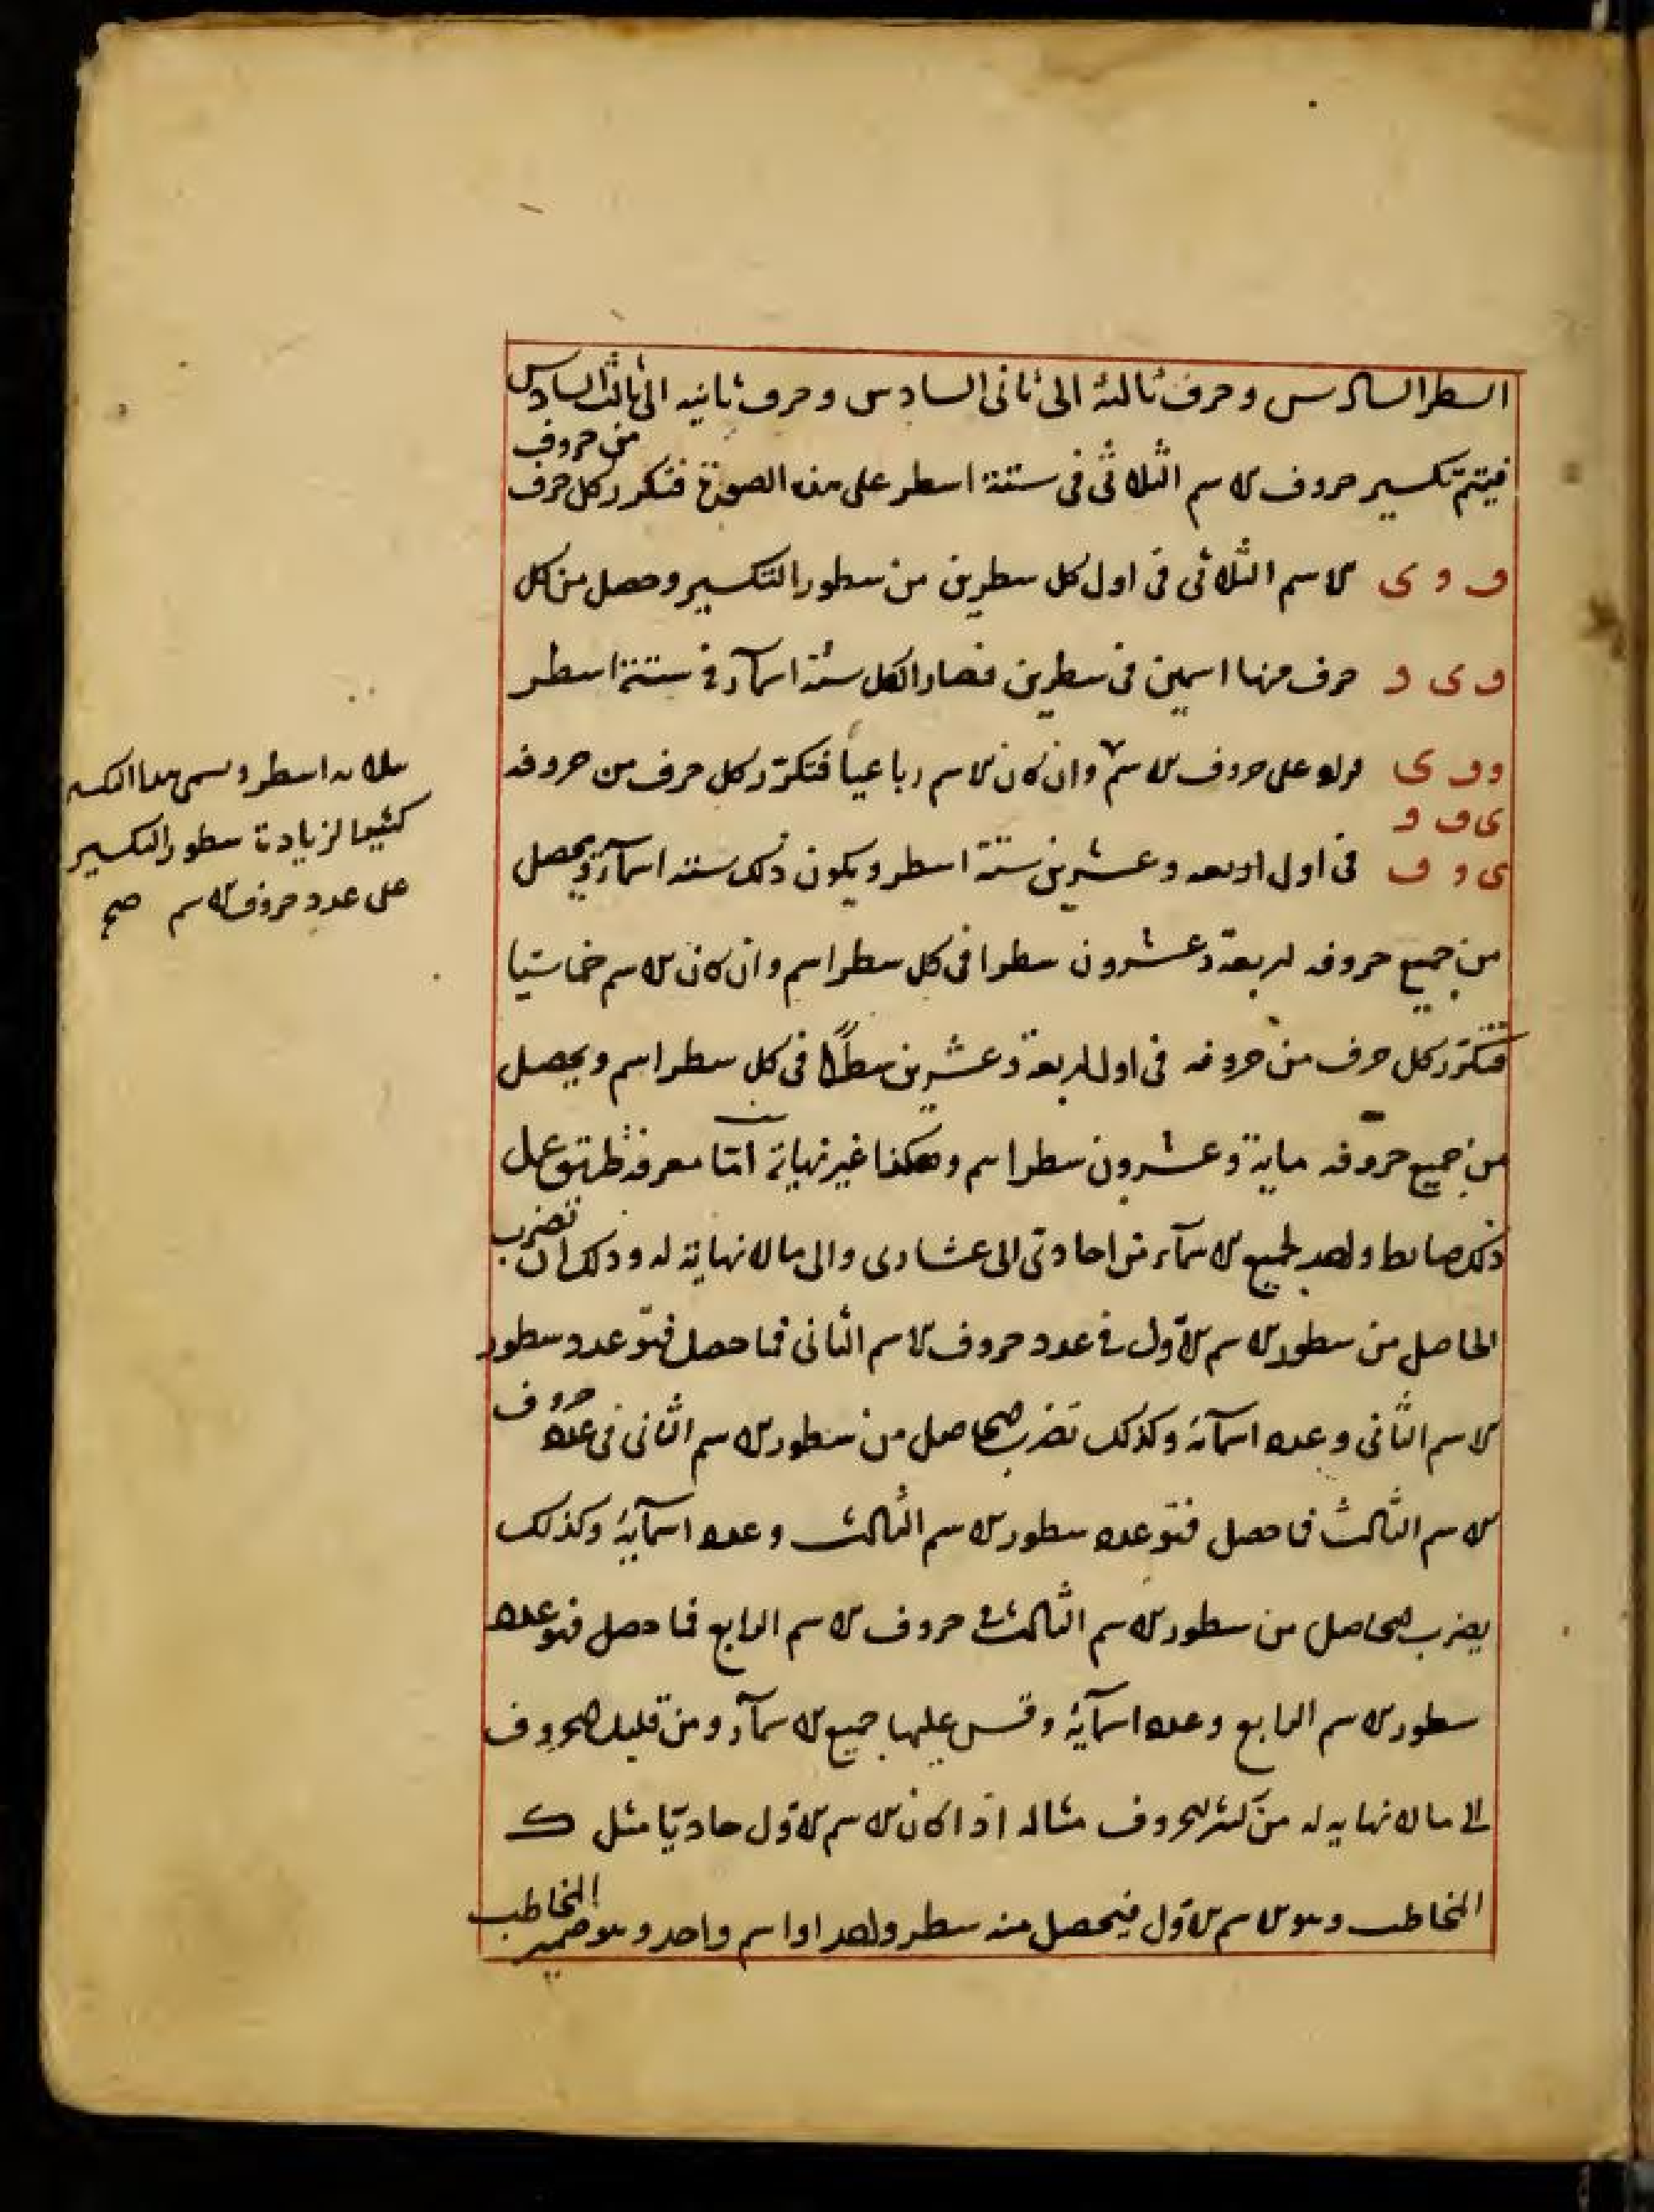 السطر السادس وحرف ثالثه الى ثانى السادس وحرف ثانيه الى ثالث السادس
فيتم تكسير حروف الاسم الثلاثى فى ستة اسطر على هذه الصورة فتكرر كل حرف من حروف
و د ى الاسم الثلاثى فى اول كل سطرين من سطور التكسير وحصل من كل
و ى د حرف منها اسمين فى سطرين فصار الكل ستة اسمآء فى ستة اسطر
د و ى على حروف الاسم وان كان الاسم رباعيا فتكرر كل حرف من حروفه
ى و د
ى د و فى اول اربعة وعشرين ستة اسطر ويكون ذلك ستة اسمآء ويحصل
من جميع حروفه اربعة وعشرون سطرا فى كل سطر اسم وان كان الاسم خماسيا
فتكرر كل حرف من حروفه فى اول اربعة وعشرين سطرا فى كل سطر اسم ويحصل
من جميع حروفه ماية وعشرون سطر اسم وهكذا غير نهاية امّا معرفة طريق عمل
ذلك ضابط واحد لجميع الاسمآء من احادى الى عشارى والى مالا نهاية له وذلك ان تضرب
الحاصل من سطور الاسم الاول فى عدد حروف الاسم الثانى فما حصل فهو عدد سطور
الاسم الثانى وعدد اسمآئه وكذلك تضرب الحاصل من سطور الاسم الثانى فى عدد حروف
الاسم الثالث فما حصل فهو عدد سطور الاسم الثالث وعدد اسمآيه وكذلك
يضرب الحاصل من سطور الاسم الثالث فى حروف الاسم الرابع فما حصل فهو عدد
سطور الاسم الرابع وعدد اسمآيه وقس عليها جميع الاسمآء ومن قليل الحروف
الى مالا نهايه له من كثير الحروف مثاله اذا كان الاسم الاول حاديّا مثل ك
المخاطب وهو الاسم الاول فيحصل منه سطر واحد او اسم واحد وهو ضمير المخاطب
ثلاثة اسطر ويسمى هذا التكسير
كثيفا لزيادة سطور التكسير
على عدد حروف الاسم صح